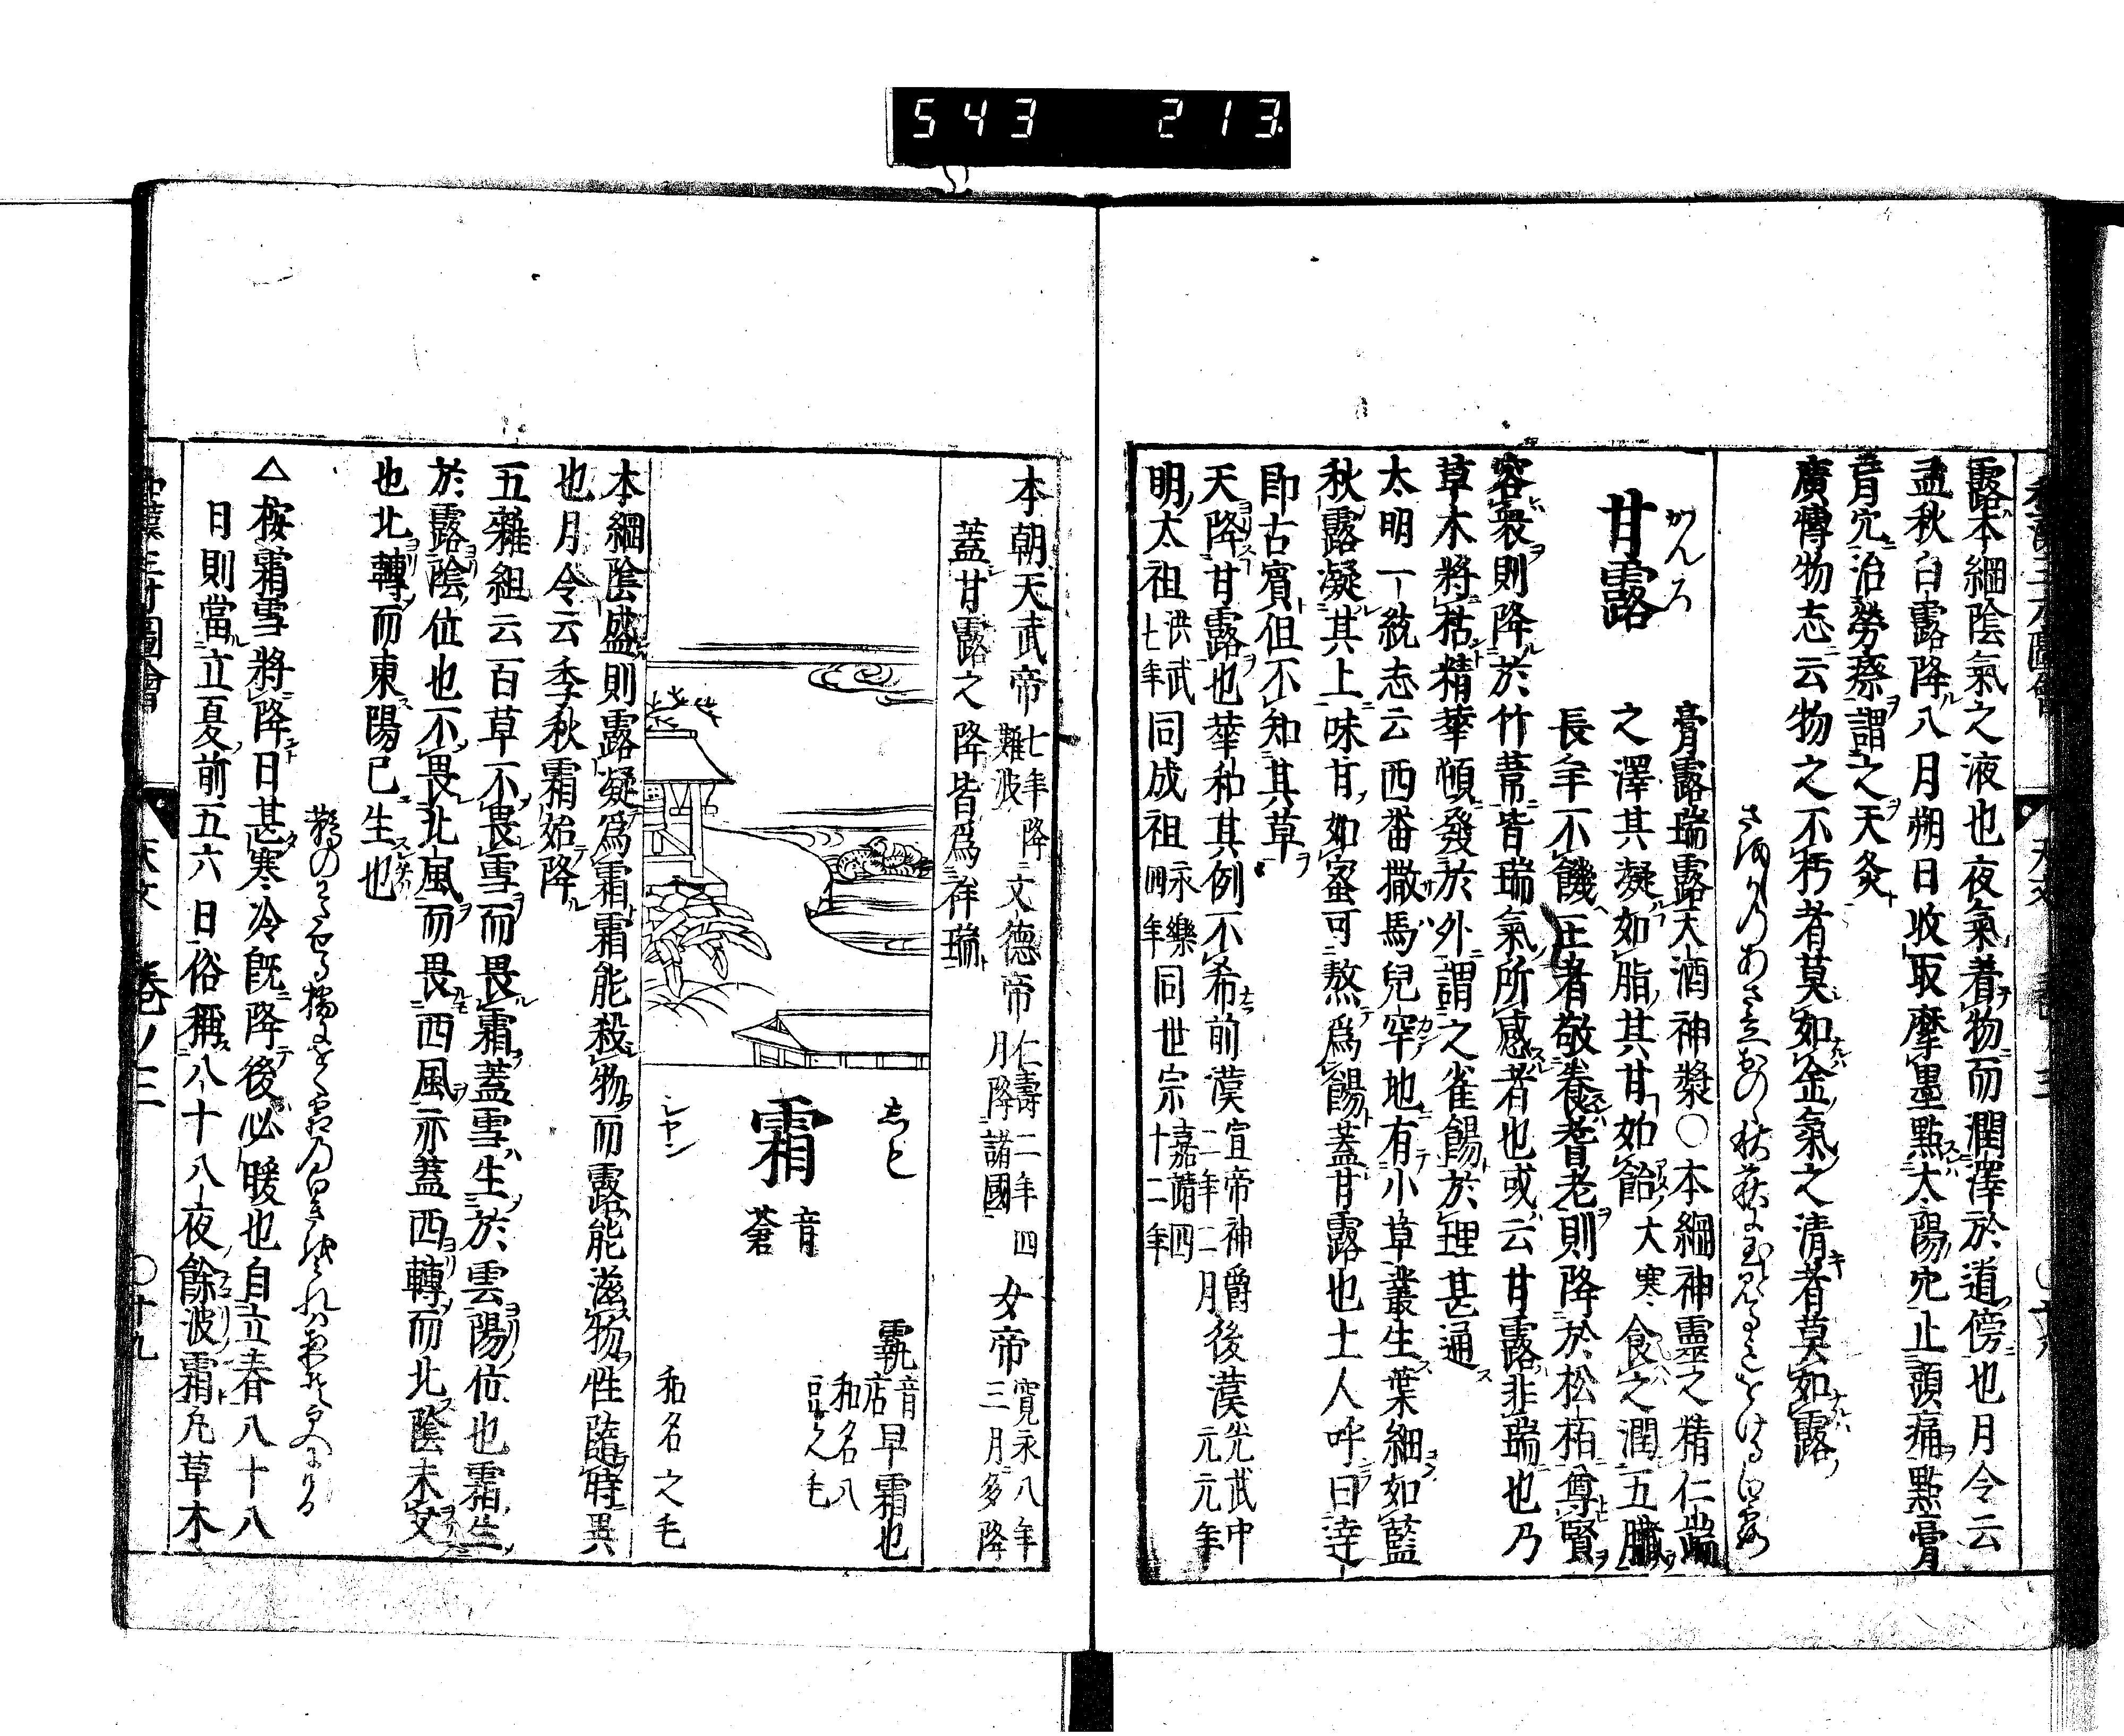 543 213
露本綱陰氣之液也夜氣着物而潤澤於道傍也月令云
孟秋白露降八月朔日收取摩墨點太陽穴止頭痛點膏
肓穴治勞瘵謂之天灸
廣博物志云物之不朽者莫如金氣之清者莫如露
甘露
かんろ
膏露瑞露天酒神漿○本綱神靈之精仁瑞
之澤其凝如脂其甘如飴大寒食之潤五臟
長年不饑王者敬養耆老則降於松栢尊賢
容衆則降於竹葦皆瑞氣所感者也或云甘露非瑞也乃
草木將枯精華頓發於外謂之雀餳於理甚通
太明一統志云西番撒馬兒罕地有小草叢生葉細如藍
秋露凝其上味甘如蜜可熬爲餳蓋甘露也土人呼曰達
即古賓但不知其草
天降甘露也華和其例不希前漢宣帝神爵二年二月後漢光武中元元年
明太祖洪武七年同成祖永樂四年同世宗嘉靖四十二年
本朝天武帝七年降難波文德帝仁壽二年四月降諸國女帝寬永八年三月多降
蓋甘露之降皆爲祥瑞
霜
しも
音蒼
シヤン
䨲音店早霜也
和名八豆之毛
和名之毛
本綱陰盛則露凝爲霜霜能殺物而露能滋物性隨時異
也月令云季秋霜始降
五雜組云百草不畏雪而畏霜蓋雪生於雲陽位也霜生
於露陰位也不畏北風而畏西風亦蓋西轉而北陰未交
也北轉而東陽已生也
△按霜雪將降日甚寒冷既降後必暖也自立春八十八
日則當立夏前五六日俗稱八十八夜餘波霜凡草木
和漢三才圖會 天文 卷ノ三 ○十九